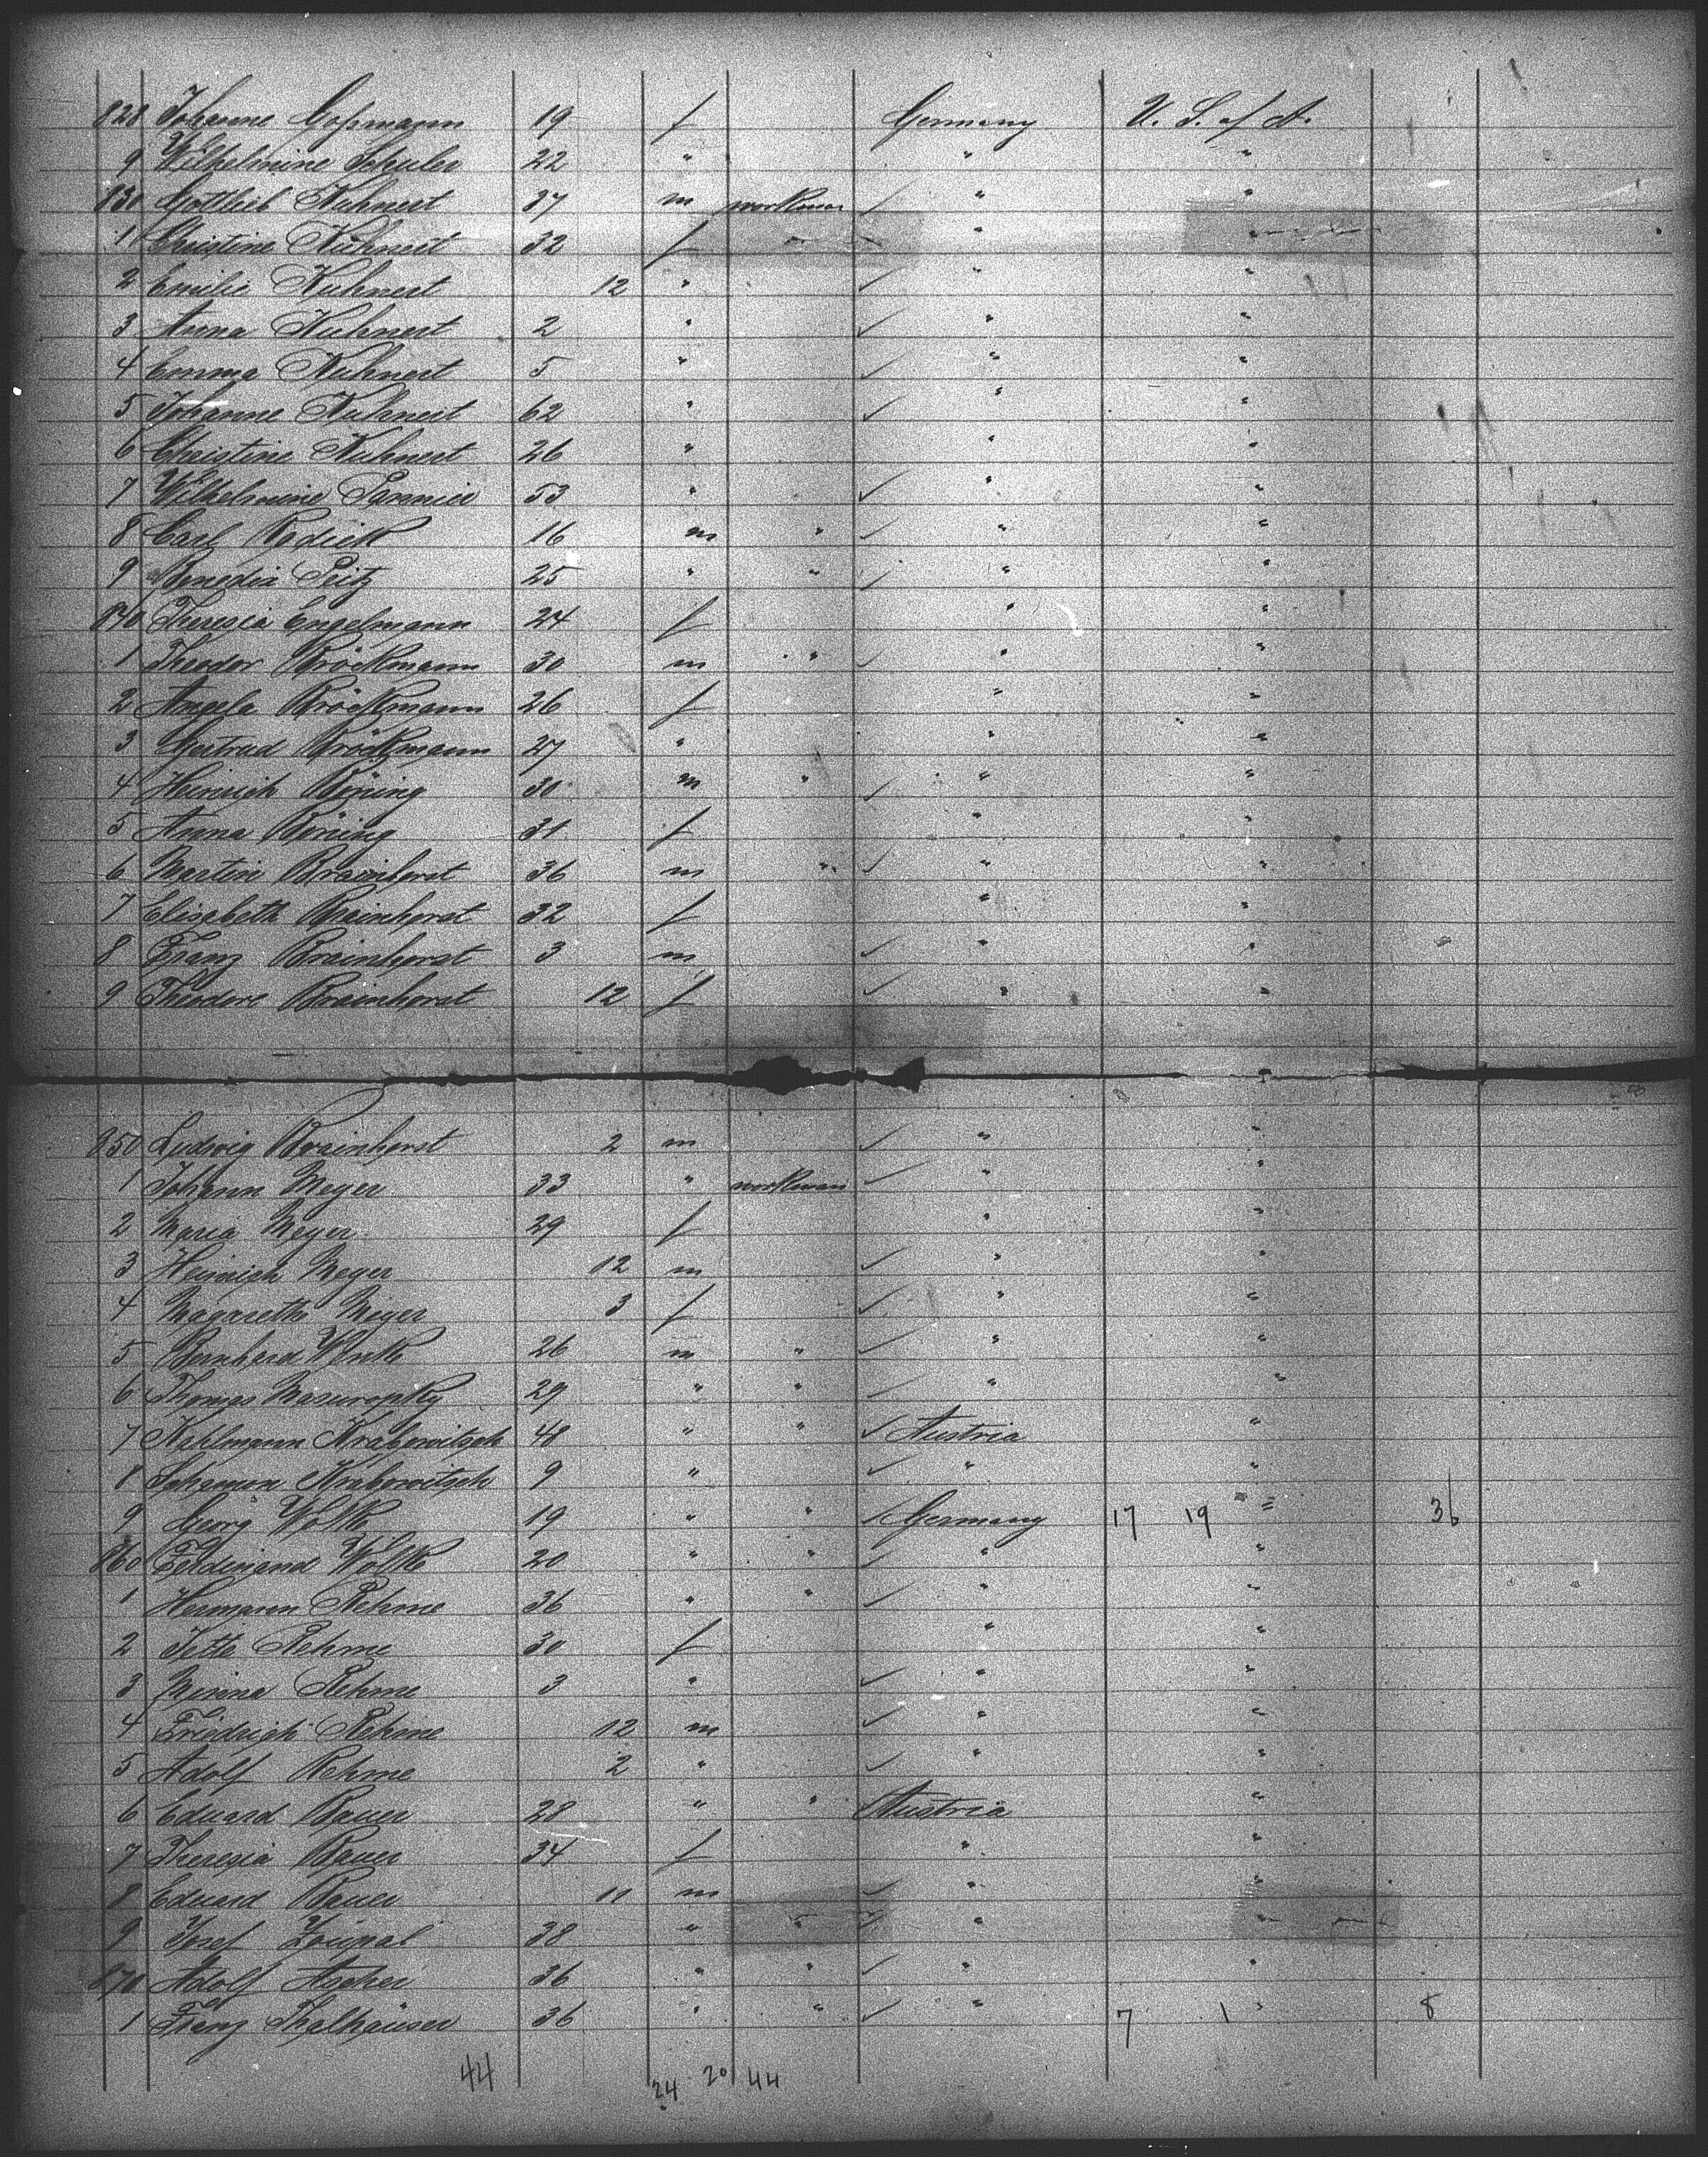 828 Johanne Goßmann 19 f Germany U. S. of A.
9 Wilhelmine Schuler 22 " " "
830 Gottlieb Kuhnert 37 m workman ✓ " "
1 Christine Kuhnert 32 f " "
2 Emilie Kuhnert 12 " ✓ " "
3 Anna Kuhnert 2 " ✓ " "
4 Emma Kuhnert 5 " ✓ " "
5 Johanne Kuhnert 62 " ✓ " "
6 Christine Kuhnert 26 " " "
7 Wilhelmine Pannier 53 " ✓ " "
8 Carl Radick 16 m " ✓ " "
9 Benedix Seitz 25 " " ✓ " "
840 Theresia Engelmann 24 f " "
1 Theodor Bröckmann 30 m " ✓ " "
2 Angela Bröckmann 26 f " "
3 Gertrud Bröckmann 27 " " "
4 Heinrich Böning 30 m " ✓ " "
5 Anna Böning 31 f " "
6 Martin Brainhorst 36 m " ✓ " "
7 Elisabeth Brainhorst 32 f " "
8 Franz Brainhorst 3 m ✓ " "
9 Theodore Brainhorst 12 f ✓ " "
850 Ludwig Brainhorst 2 m ✓ " "
1 Johann Meyer 33 " workman ✓ " "
2 Maria Meyer 29 f " "
3 Heinrich Meyer 12 m ✓ " "
4 Magareth Meyer 3 f ✓ " "
5 Bernhard 26 m " ✓ " "
6 Thomas Masuropsky 29 " " ✓ " "
7 Kahlmann Krabowitsch 48 " " ✓ Austria "
8 Krabowitsch 9 " ✓ " "
9 Georg Wölk 19 " " ✓ Germany 17 19 " 36
860 Ferdinand Wölk 20 " " ✓ " "
1 Hermann Rehme 36 " " ✓ " "
2 Jette Rehme 30 f " "
3 Minna Rehme 3 " ✓ " "
4 Friedrich Rehme 12 m ✓ " "
5 Adolf Rehme 2 " ✓ " "
6 Eduard Bauer 28 " " Austria "
7 Theresia Bauer 34 f " "
8 Eduard Bauer 11 m ✓ " "
9 Josef 38 " " ✓ " "
870 Adolf Ascher 36 " " ✓ " "
1 Franz Thalhäuser 36 " " ✓ " 7 1 " 8
44 24 20 44